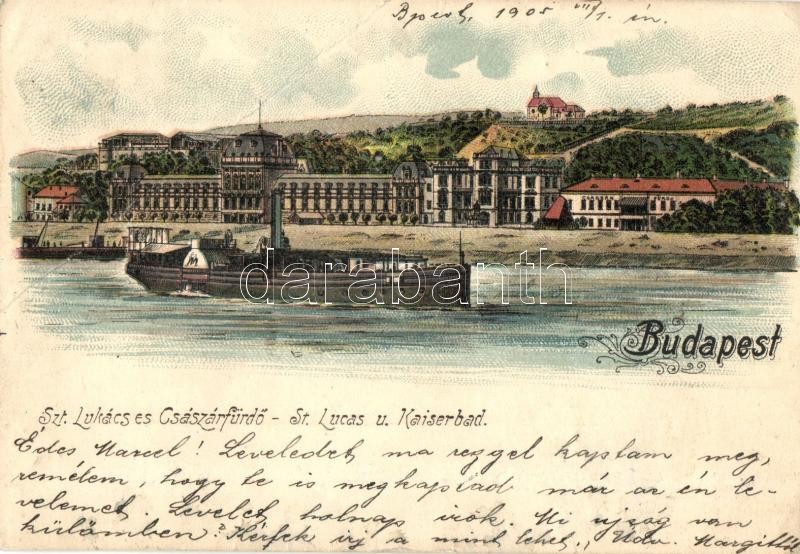 Bpest, 1905 VIII/1. én.
M
darabanth.com
Budapest
Szt. Lukács es Császárfürdő - St. Lucas u. Kaiserbad.
Édes Marcel! Leveledet ma reggel kaptam meg,
remélem, hogy te is megkaptad már az én le-
velemet. Levelet holnap irok. Mi ujság van
külömben? Kérlek irj a mint lehet., Üdv. Margit